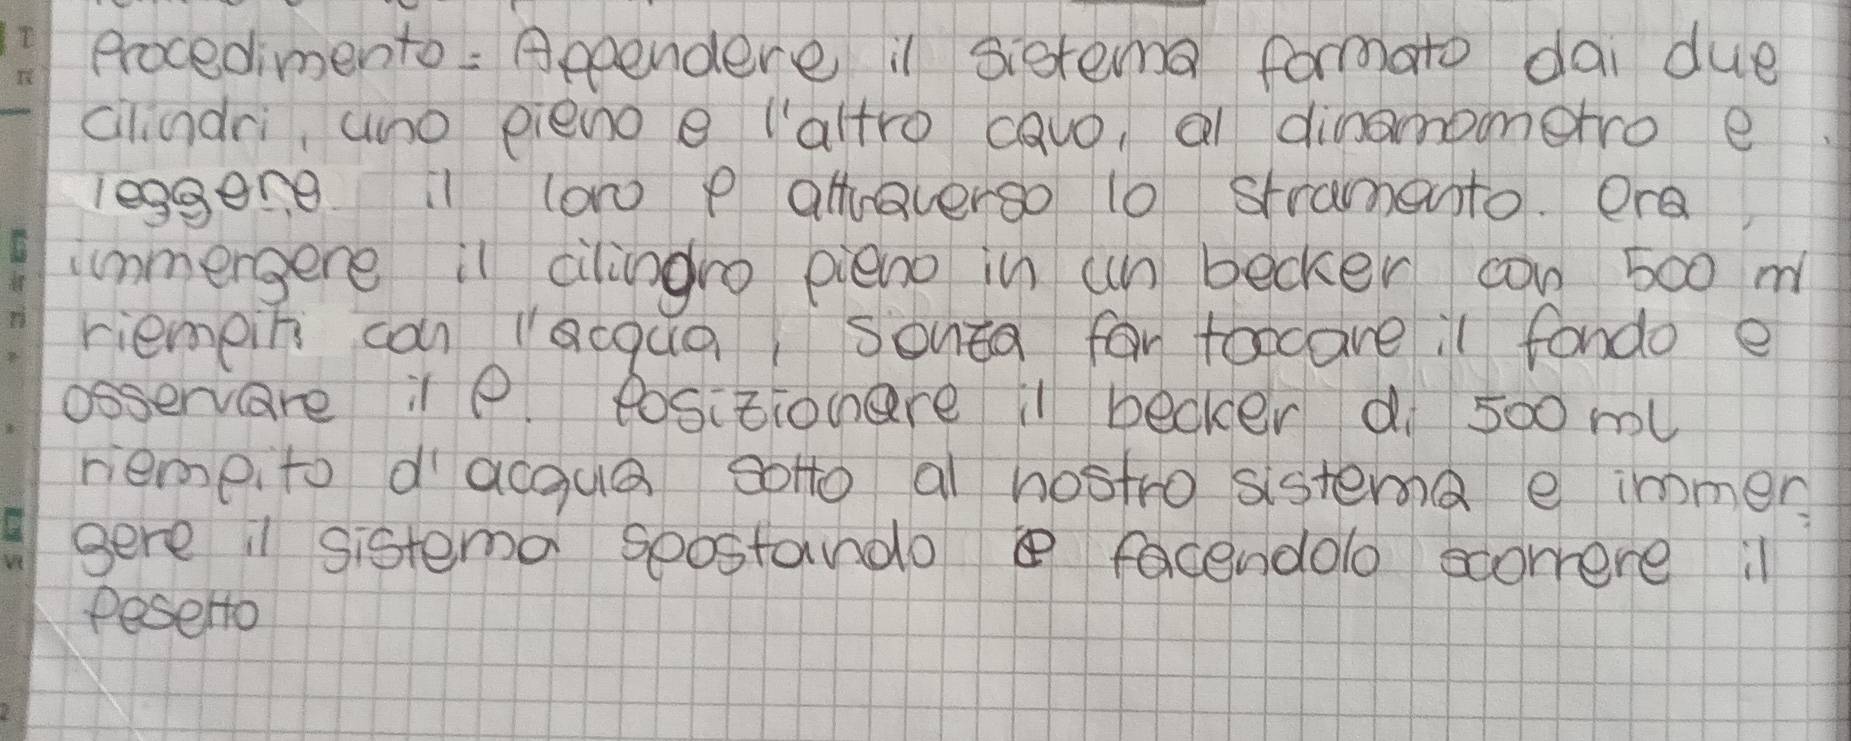 Procedimento = Appendere il sistema formato dai due
cilindri, uno pieno e l'altro cavo, al dinamometro e
leggere il loro P attraverso lo strumento. Ora,
immergere il cilingro pieno in un becker con 500 ml
riempiti con l'acqua, senza far toccare il fondo e
osservare il P. Posizionare il becker di 500 ml
riempito d'acqua sotto al nostro sistema e immer
gere il sistema spostando e facendolo scorrere il
pesetto